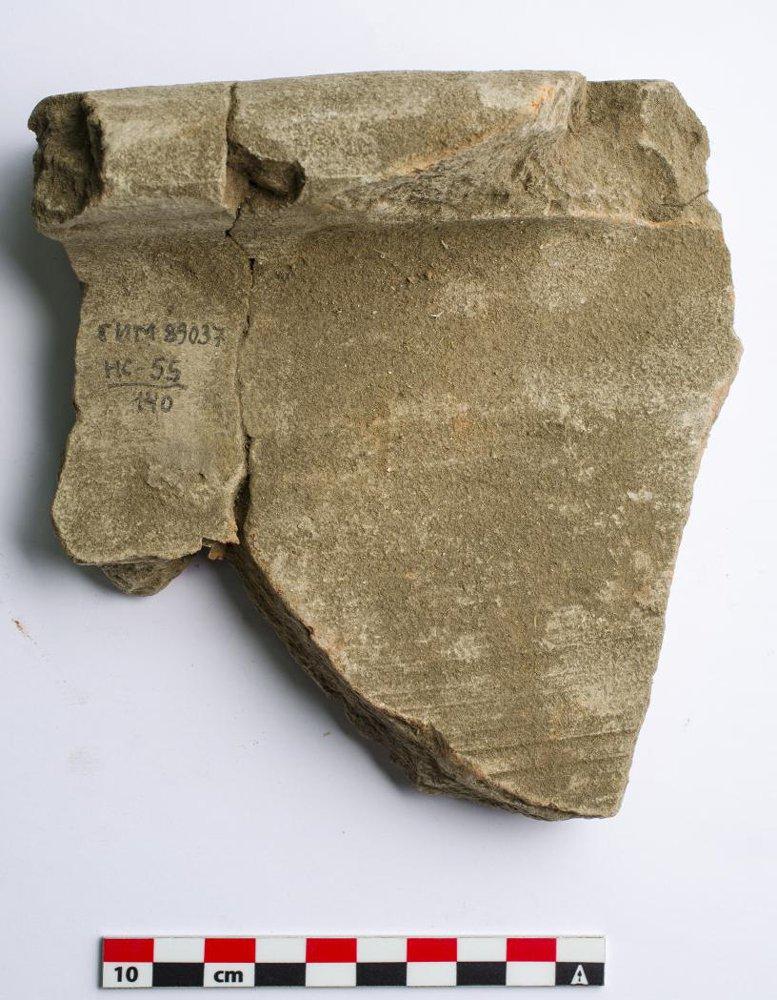 ГИМ 89037
НС-55
140
10 cm
A